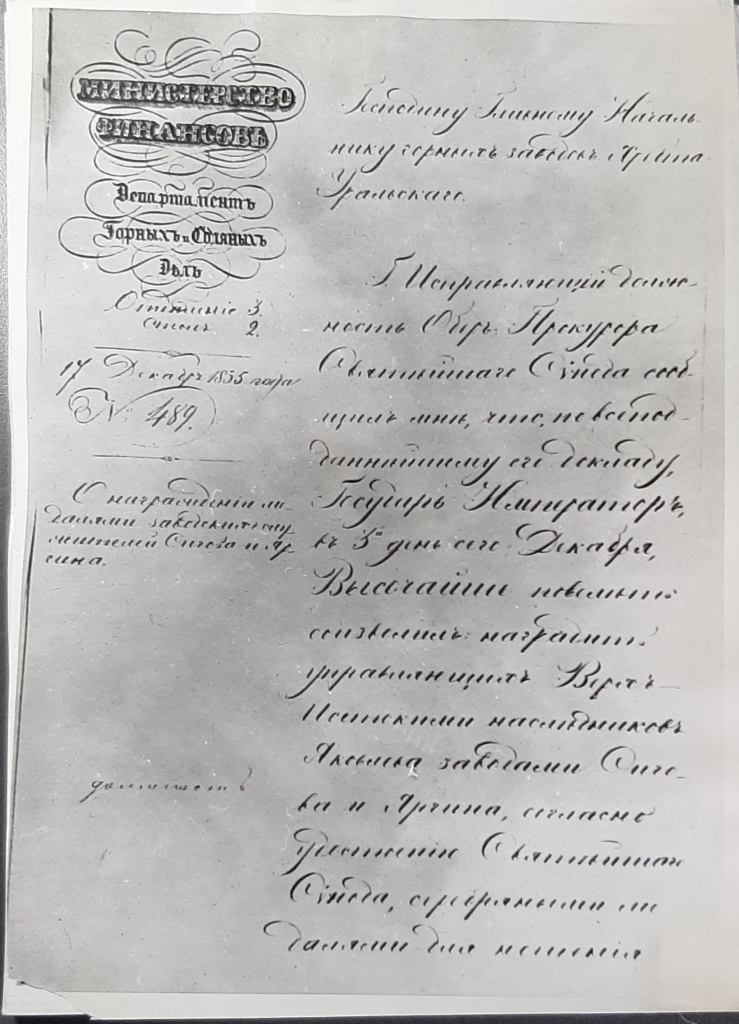 МИНИСТЕРСТВО
ФИНАНСОВЪ
Департаментъ
Горныхъ и Соляныхъ
Дѣлъ
Отдѣленіе 3.
Столъ 2.
17 Декабр. 1855 года
№ 489.
О награжденіи ме-
далями заводскихъ
жителей Сигова и Яр-
гина.
должность
Господину Главному Началь-
нику горныхъ заводовъ Хребта
Уральскаго.
Г. Исправляющій долж-
ность Оберъ Прокурора
Святѣйшаго Сѵнода сооб-
щилъ мнѣ, что, по всепод-
даннѣйшему его докладу,
Государь Императоръ,
въ 3й день сего Декабря,
Высочайше повелѣть
соизволилъ: наградить
управляющихъ Верхъ-
Исетскими наслѣдниковъ
Яковлева заводами Сиго-
ва и Яргина, согласно
удостоенію Святѣйшаго
Сѵнода, серебряными ме
далями для ношенія